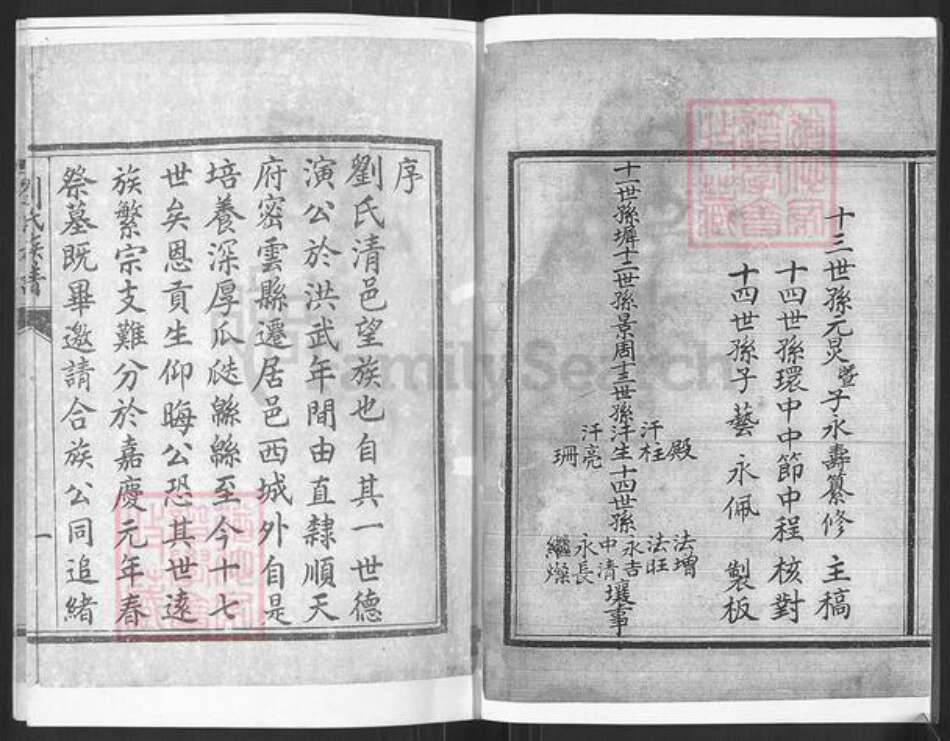 十三世孫元炅暨子永壽纂修 主稿
十四世孫環中中節中程 核對
十四世孫子藝 永佩 製板
十一世孫墀十二世孫景周十三世孫
殿
汗柱
泮生
汗亮
珊
十四世孫
法增
法旺
永吉
中清
永長
繼燦
壤事
序
劉氏清邑望族也自其一世德
演公於洪武年間由直隸順天
府密雲縣遷居邑西城外自是
培養深厚瓜瓞緜緜至今十七
世矣恩貢生仰晦公恐其世遠
族繁宗支難分於嘉慶元年春
祭墓既畢邀請合族公同追緒
劉氏族譜
一
FamilySearch